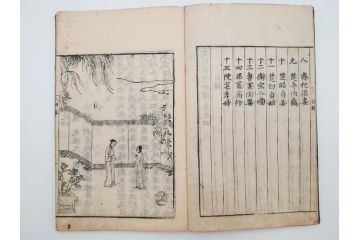 八 齊杞梁妻
九 楚平伯嬴
十 楚昭貞姜
十一 楚白貞姬
十二 衛宗二順
十三 魯寡陶嬰
十四 梁寡高行
十五 陳寡孝婦